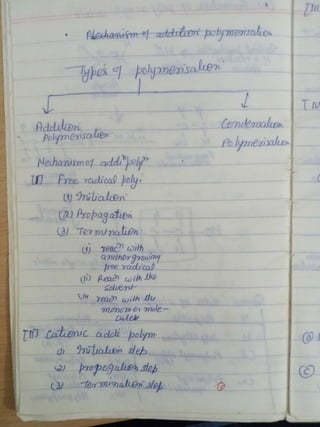 • Mechanism of addition polymerisation
Types of polymerisation
Addition Polymerisation
Condensation Polymerisation
Mechanism of addiⁿ polyⁿ
[I] Free radical poly.
(1) Initiation
(2) Propagation
(3) Termination
(i) reacⁿ with
another growing
free radical
(ii) Reacⁿ with the
solvent
(iii) reacⁿ with the
monomer mole-
cules
[II] Cationic additi polym
(1) Initiation step
(2) propagation step
(3) Termination step
[III
[IV